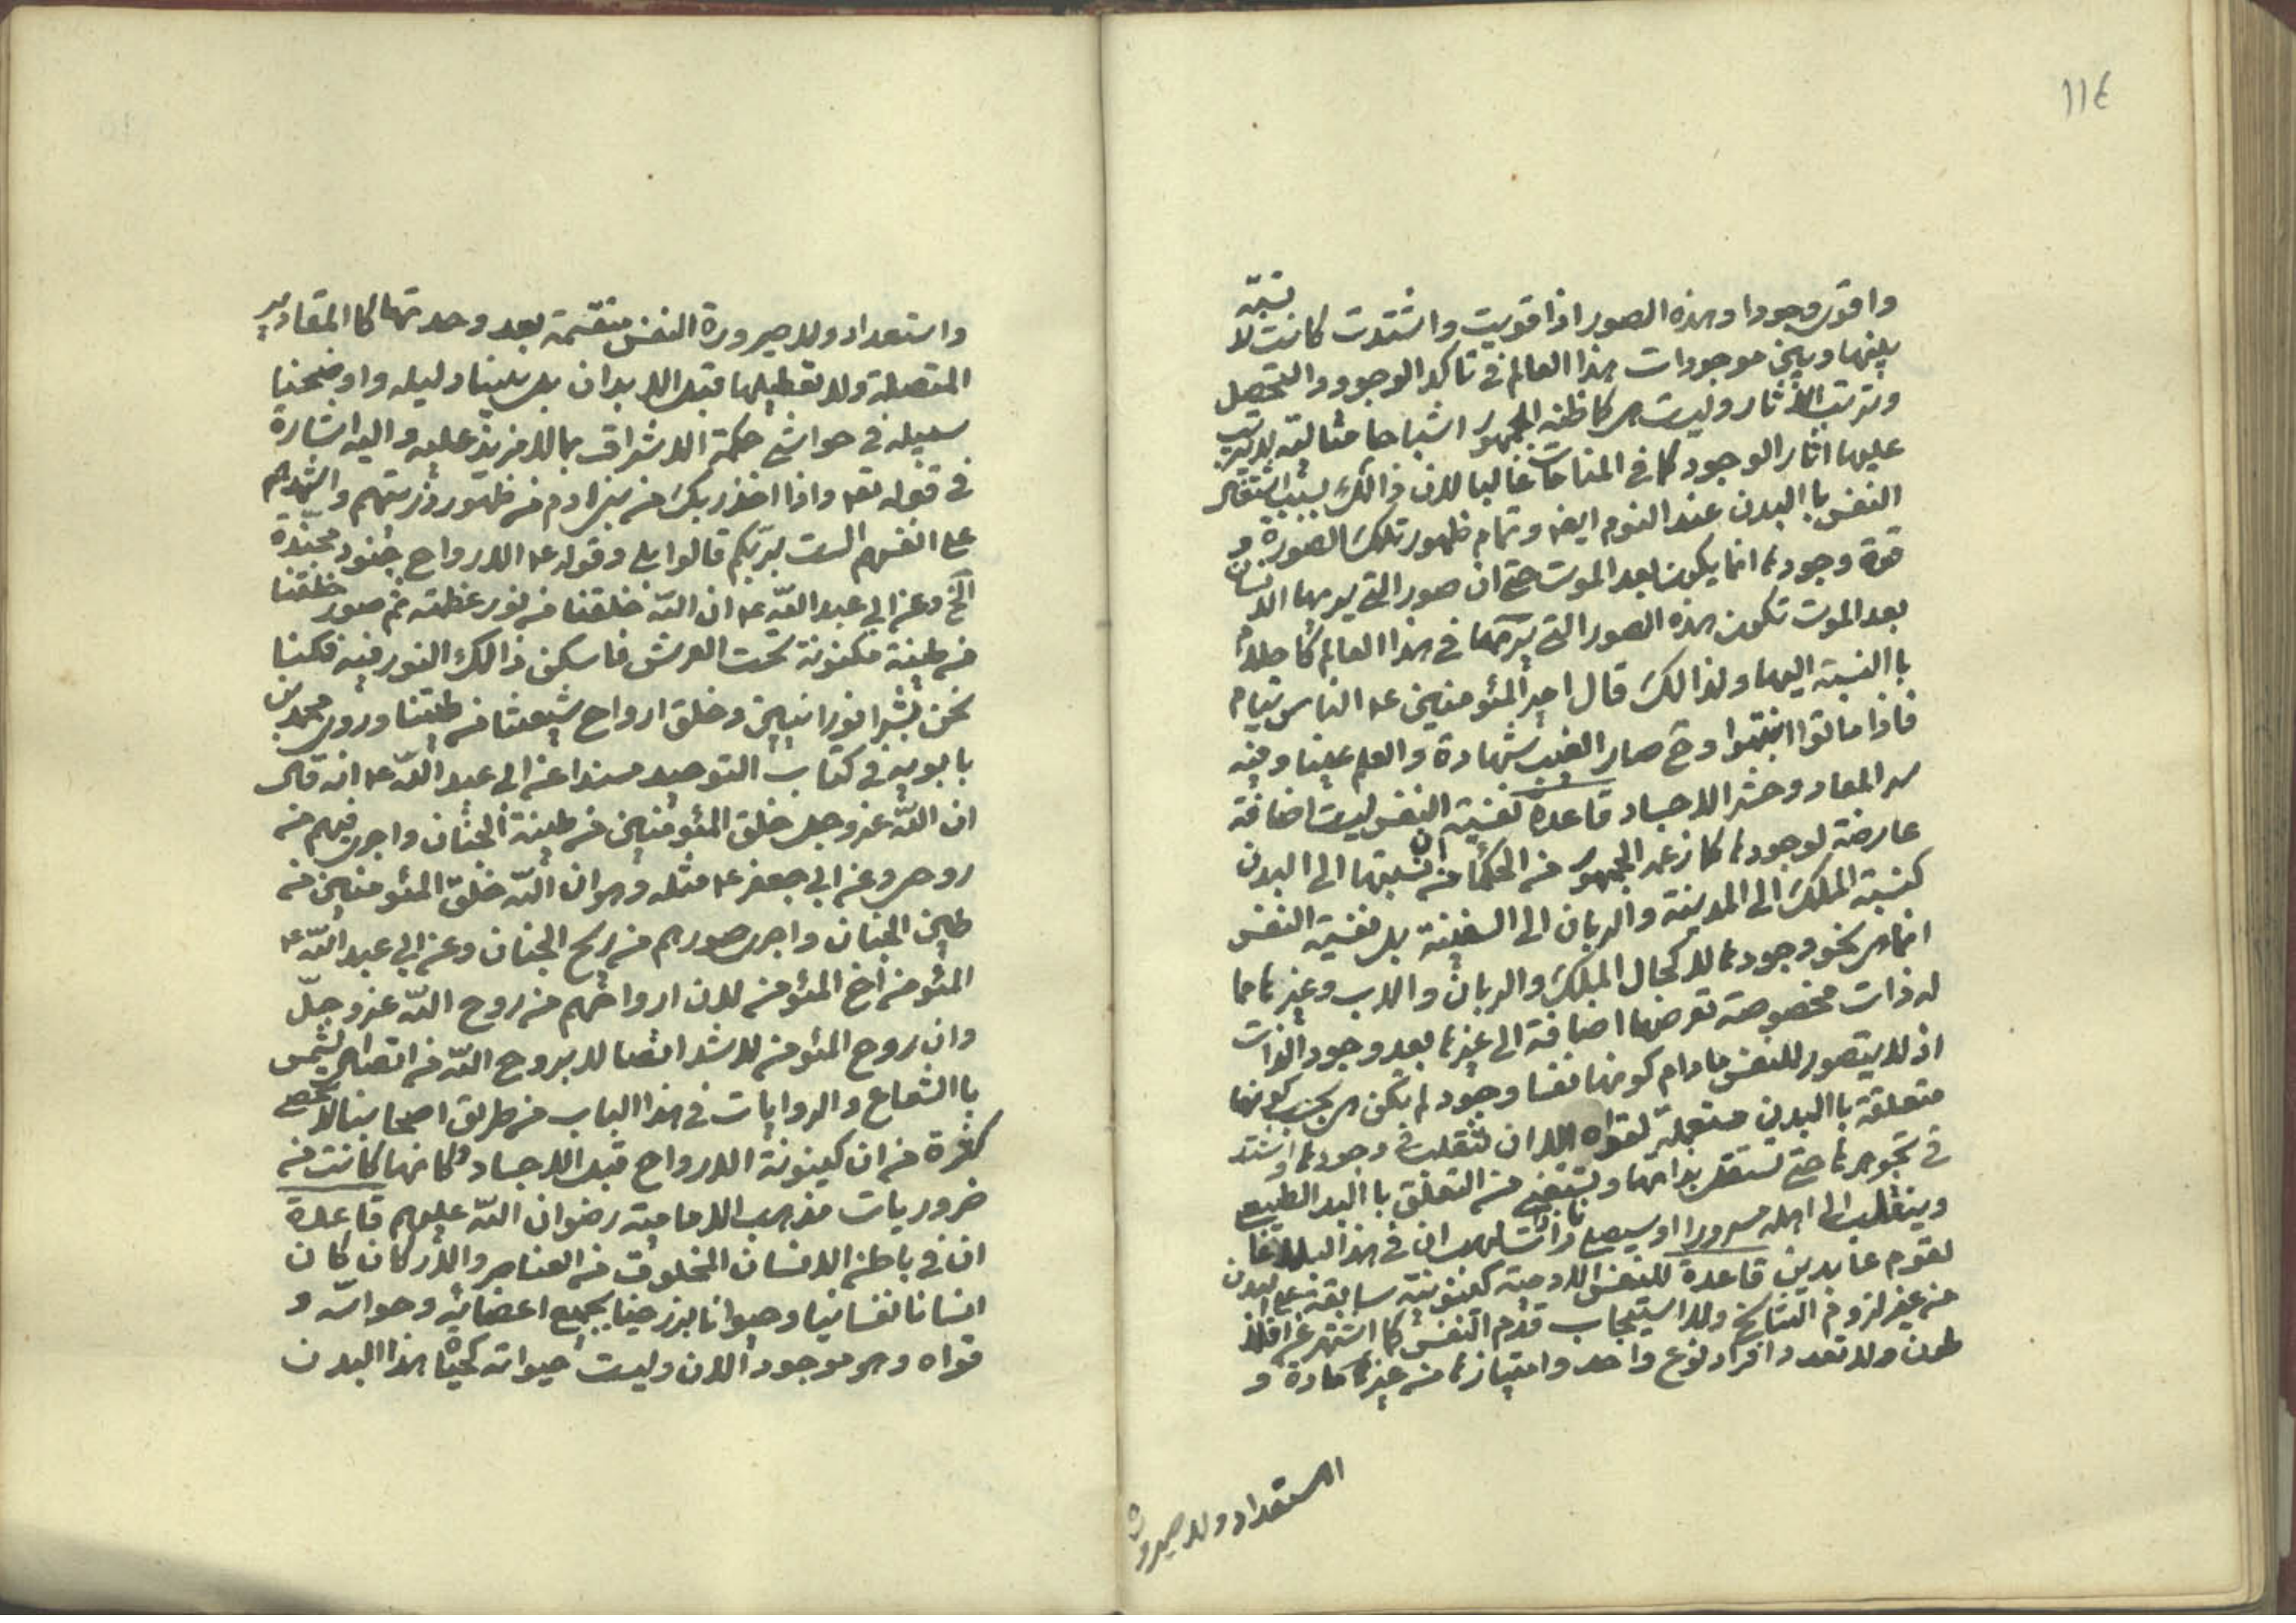 ١١٤
واقوى وجودا وهذه الصور اذا قويت واشتدت كانت لا نسبة
بينها وبين موجودات هذا العالم في تاكد الوجود والتحصل
وترتب الآثار وليست هي كما ظنه الجمهور اشباحا مثالية لا يترتب
عليها اثار الوجود كما في المنامات غالبا لان ذالك بسبب اشتغال
النفس باالبدن عند النوم ايضا وتمام ظهور تلك الصورة و
قوة وجودها انما يكون بعد الموت حتى ان صور التي يريها الانسان
بعد الموت تكون هذه الصور التي يريها في هذا العالم كاحلام
باالنسبة اليها ولذالك قال امير المئومنين ع الناس نيام
فاذا ماتوا انتبهوا وح صار الغيب شهادة والعلم عينا وفيه
سر المعاد وحشر الاجساد قاعدة نفسية النفس ليست اضافة
عارضة لوجودها كما زعمه الجمهور من الحكماء من ان نسبتها الى البدن
كنسبة الملك الى المدينة والربان الى السفينة بل نفسية النفس
انما هي نحو وجودها لا كحال الملك والربان والاب وغيرها مما
له ذات مخصوصة تعرضها اضافة الى غيرها بعد وجود الذات
اذ لا يتصور للنفس مادام كونها نفسا وجود لم تكن هي بحسب كونها
متعلقة باالبدن مستعملة لقواه الا ان تنقلب في وجودها واشتد
في تجوهرها حتى تستقل بذاتها وتستغني من التعلق باالبدن الطبيعي
وينقلب الى اهله مسرورا او سيصلى نارا ذات لهب ان في هذا لبلاغا
لقوم عابدين قاعدة للنفس الادمية كينونية سابقة على البدن
من غير لزوم التناسخ ولا استيجاب قدم النفس كما اشتهر عن افلا
طون ولا تعدد افراد نوع واحد وامتيازها من غير مادة و
استعداد ولا صيرورة
واستعداد ولا صيرورة النفس منقسمة بعد وحدتها كاالمقادير
المتصلة ولا تعطيلها قبل الابدان بل بينا دليله واوضحنا
سبيله في حواشي حكمة الاشراق بما لا مزيد عليه واليه اشارة
في قوله تعه واذا اخذ ربك من بني ادم من ظهور ذريتهم واشهدهم
على انفسهم الست بربكم قالوا بلى وقوله ع الارواح جنود مجندة
الخ وعن ابي عبد الله ع ان الله خلقنا من نور عظمته ثم صور خلقنا
من طينة مكنونة تحت العرش فاسكن ذالك النور فيه فكنا
نحن بشرا نورانيين وخلق ارواح شيعتنا من طينتنا وروى محمد بن
بابويه في كتاب التوحيد مسندا عن ابي عبد الله ع انه قال
ان الله عز وجل خلق المئومنين من طينة الجنان واجرى فيهم من
روحه وعن ابي جعفر ع مثله وهو ان الله خلق المئومنين من
طين الجنان واجرى صورهم من ريح الجنان وعن ابي عبد الله ع
المئومن اخ المئومن لان ارواحهم من روح الله عز وجل
وان روح المئومن لاشد اتصالا بروح الله من اتصال الشمس
باالشعاع والروايات في هذا الباب من طريق اصحابنا لا تحصى
كثرة من ان كينونة الارواح قبل الاجساد وكانها كانت من
ضروريات مذهب الامامية رضوان الله عليهم قاعدة
ان في باطن الانسان المخلوق من العناصر والاركان كان
انسانا نفسانيا وحيوانا برزخيا بجميع اعضائه وحواسه و
قواه وهو موجود الان وليست حيواته كحيوة هذا البدن